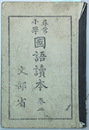 尋常
小學
國語讀本
卷二
文部省